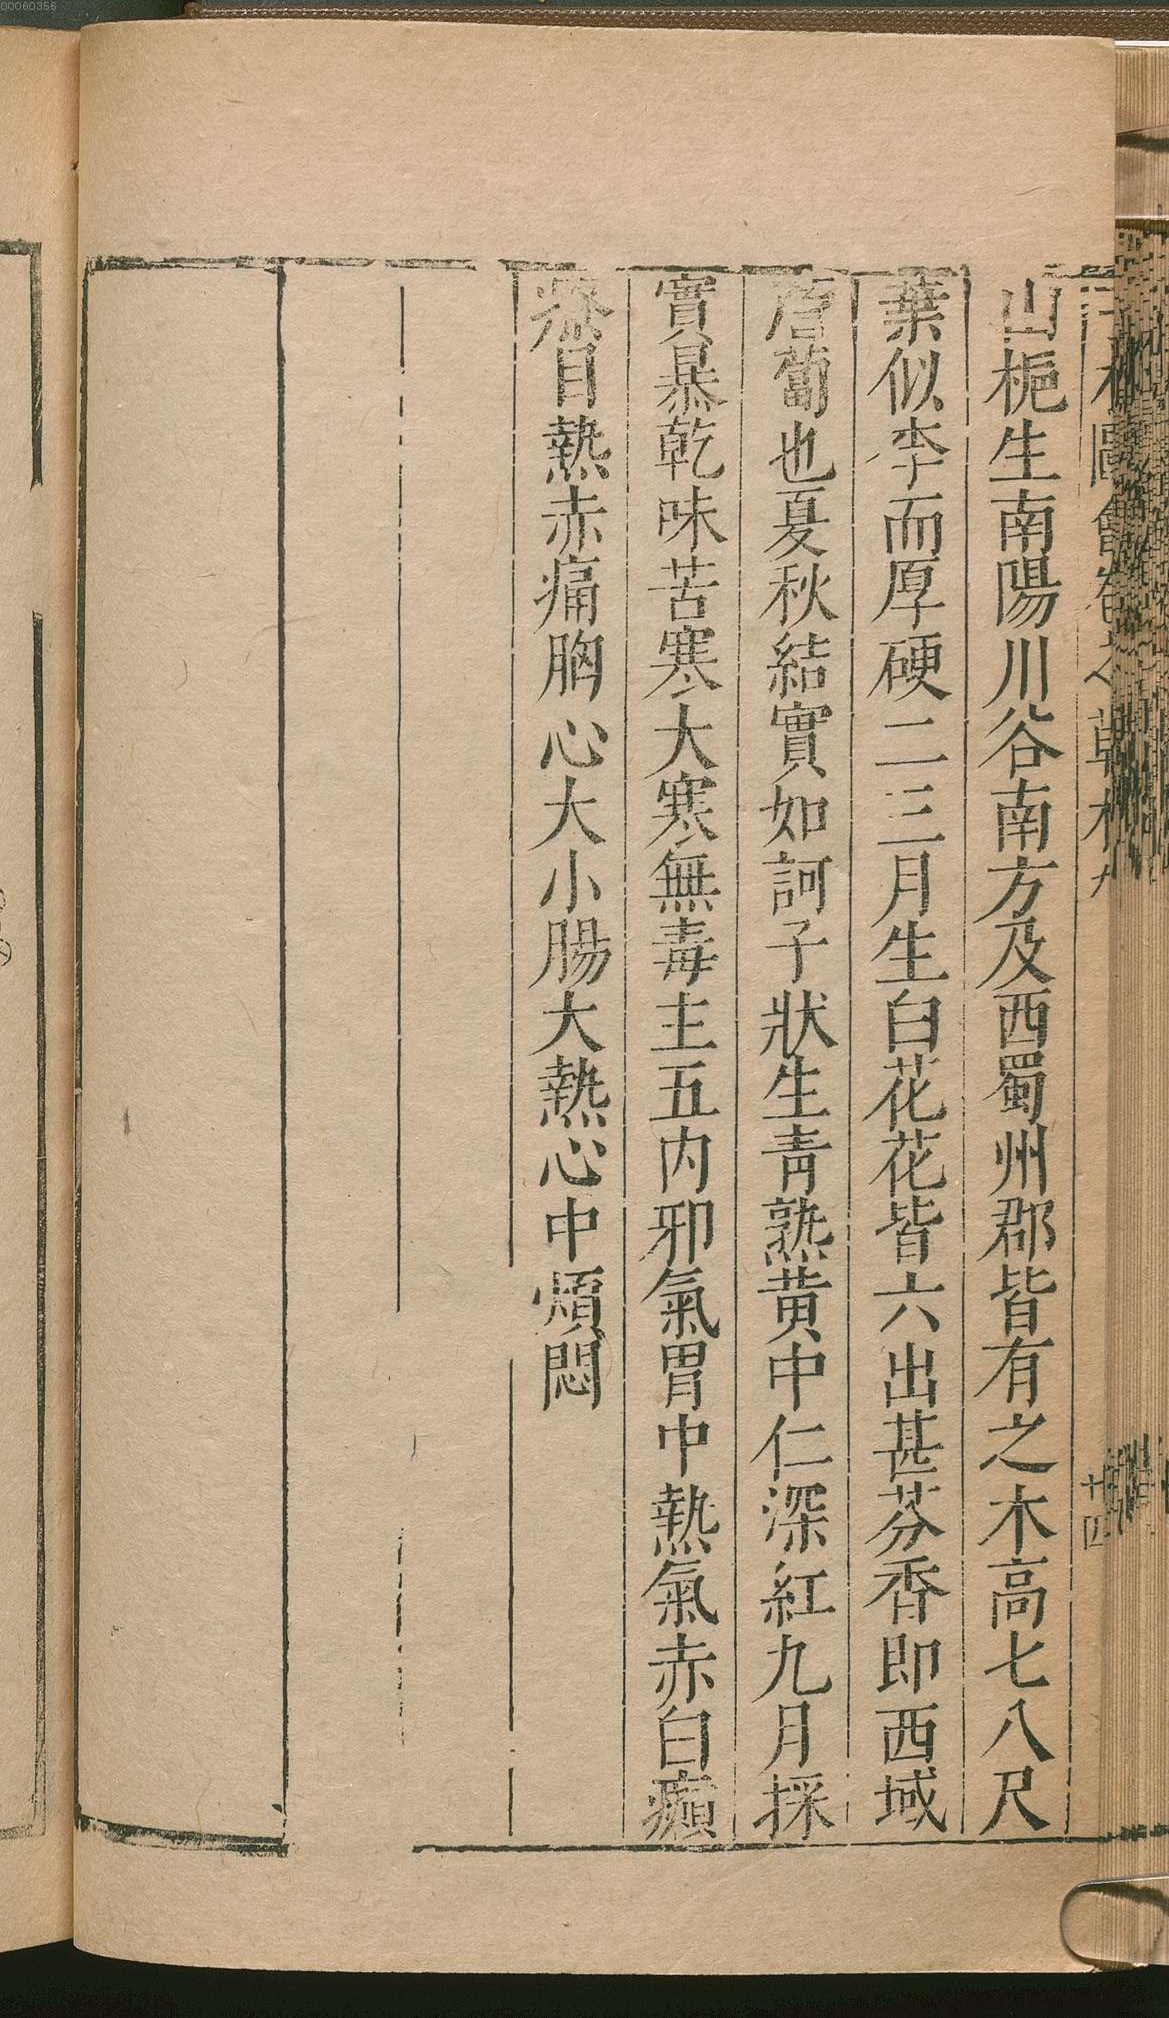 00060356
山梔生南陽川谷南方及西蜀州郡皆有之木高七八尺
葉似李而厚硬二三月生白花花皆六出甚芬香即西域
詹蔔也夏秋結實如訶子狀生青熟黄中仁深紅九月採
實暴乾味苦寒大寒無毒主五内邪氣胃中熱氣赤白癩
瘡目熱赤痛胸心大小腸大熱心中煩悶
十四